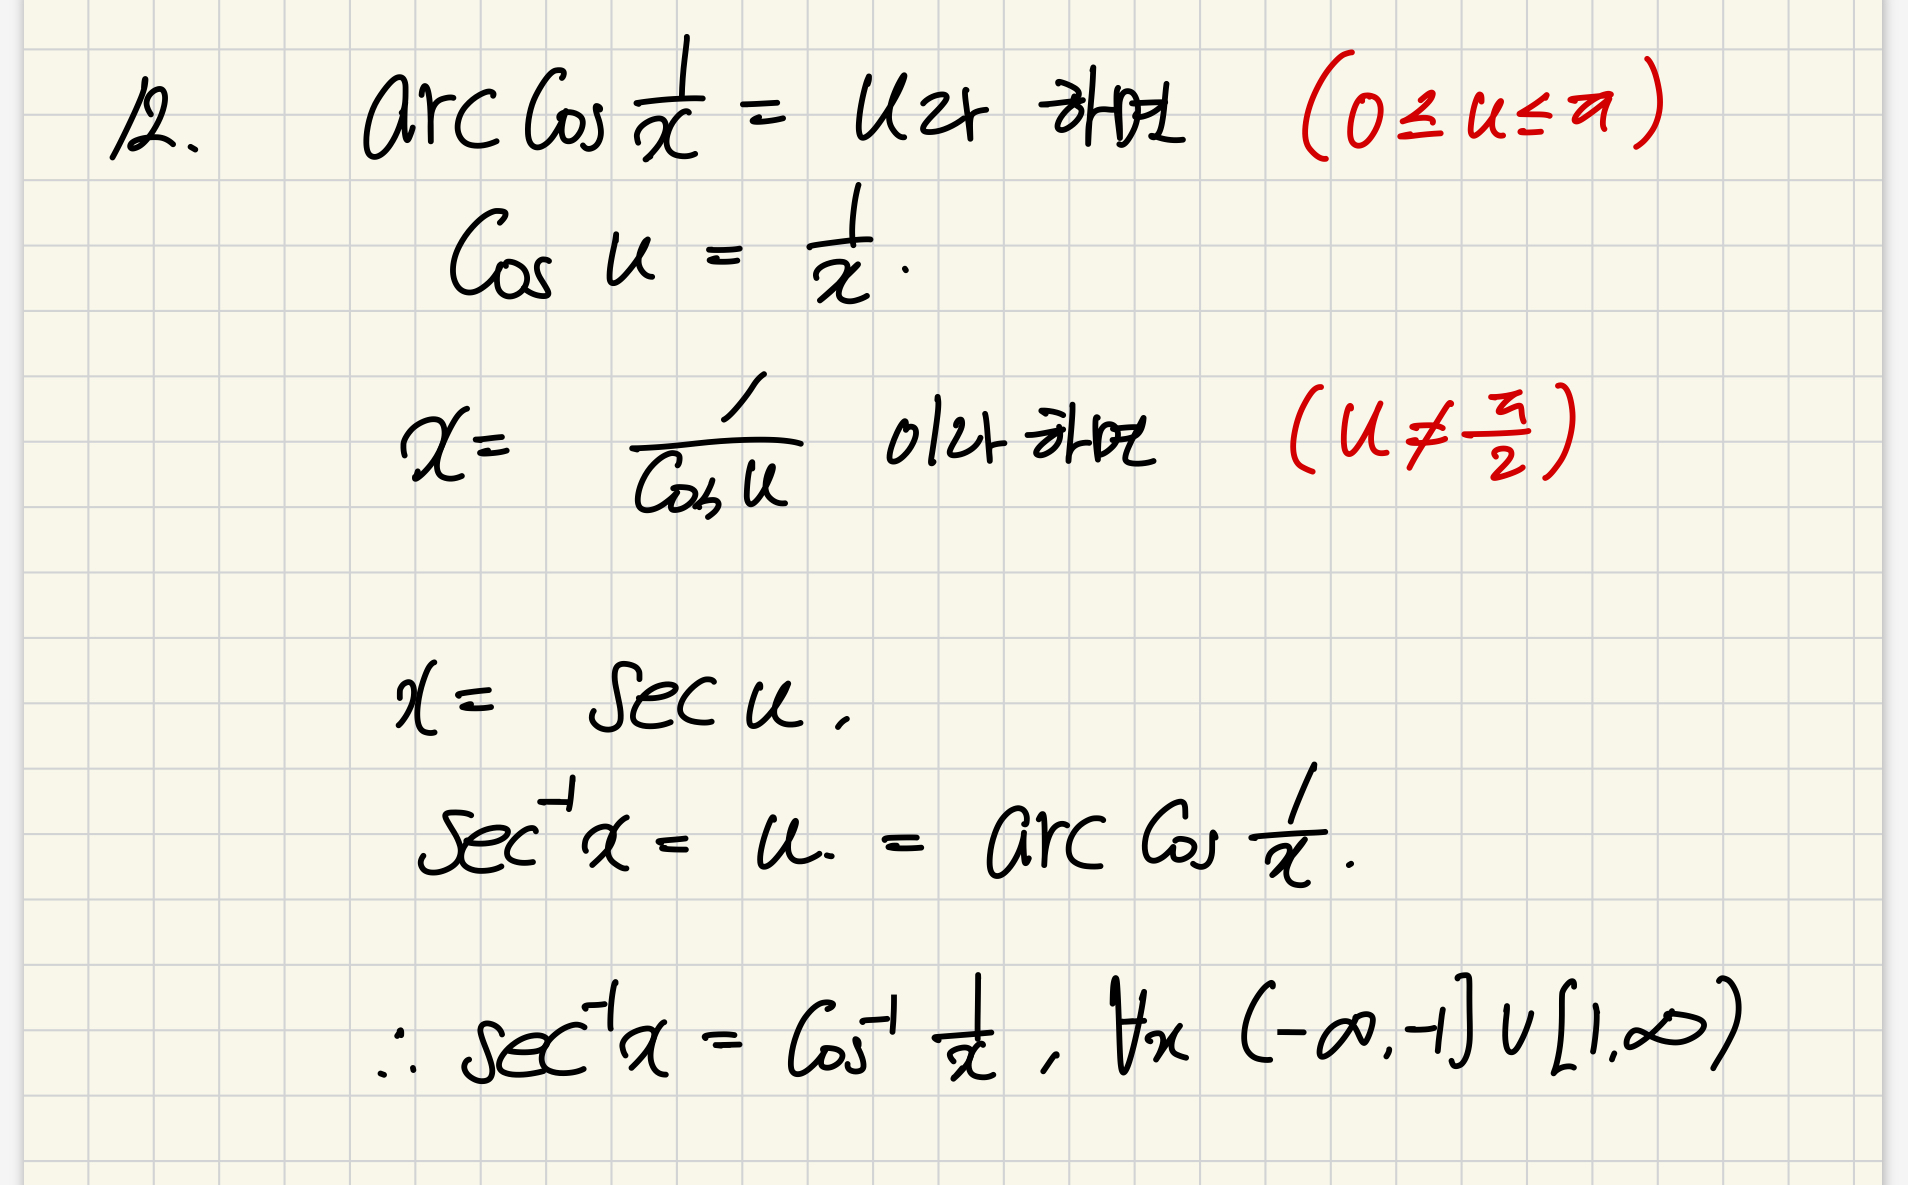 12. arc cos 1/x = u라 하면 (0 ≤ u ≤ π)
cos u = 1/x.
x = 1/cos u 이라 하면 (u ≠ π/2)
x = sec u.
sec⁻¹x = u. = arc cos 1/x.
∴ sec⁻¹x = cos⁻¹ 1/x, ∀x (-∞, -1] ∪ [1, ∞)